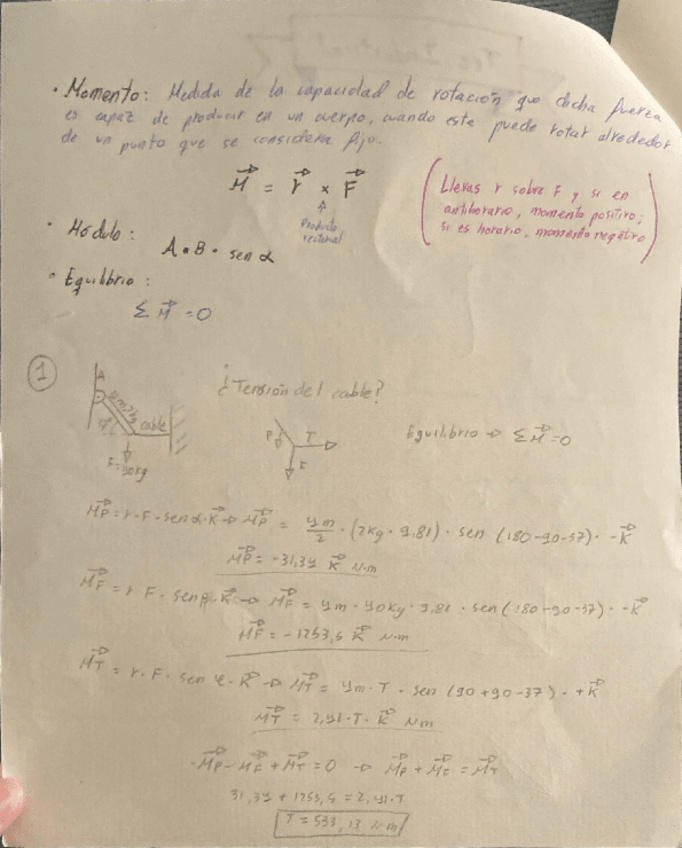 · Momento: Medida de la capacidad de rotación que dicha fuerza
es capaz de producir en un cuerpo, cuando este puede rotar alrededor
de un punto que se considera fijo.
M = r x F
Producto
vectorial
(Llevas r sobre F y si es
antihorario, momento positivo;
si es horario, momento negativo)
· Módulo:
A · B · sen α
· Equilibrio:
Σ M = 0
1
A
4m, 2kg
37°
cable
F=40kg
¿Tensión del cable?
P
T
F
Equilibrio → Σ M = 0
MP = r · F · sen α · K → MP = 4m/2 · (2kg · 9,81) · sen (180-90-37) · -K
MP = -31,34 K N·m
MF = r · F · sen β · K → MF = 4m · 40kg · 9,81 · sen (180-90-37) · -K
MF = -1253,5 K N·m
MT = r · F · sen φ · K → MT = 4m · T · sen (90+90-37) · +K
MT = 2,41 · T · K N·m
-MP - MF + MT = 0 → MP + MF = MT
31,34 + 1253,5 = 2,41 · T
T = 533,13 N·m